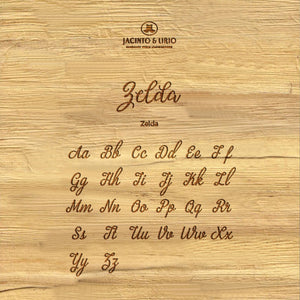 JACINTO & LIRIO
Zelda
Zelda
Aa Bb Cc Dd Ee Ff
Gg Hh Ii Jj Kk Ll
Mm Nn Oo Pp Qq Rr
Ss Tt Uu Vv Ww Xx
Yy Zz